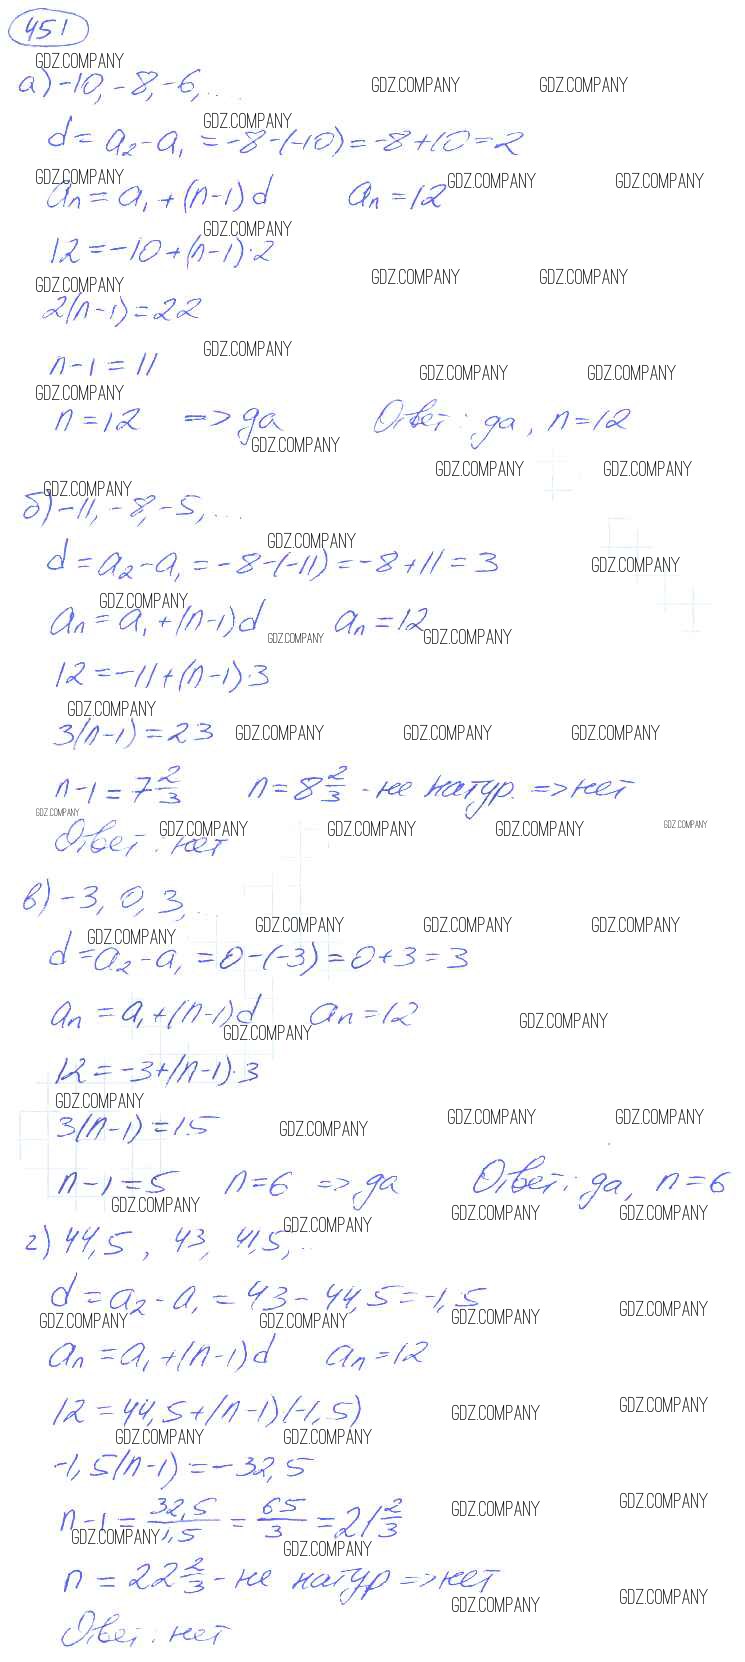 451
а) -10, -8, -6, ...
d = a₂ - a₁ = -8 - (-10) = -8 + 10 = 2
aₙ = a₁ + (n-1) d     aₙ = 12
12 = -10 + (n-1)·2
2(n-1) = 22
n-1 = 11
n = 12 => да     Ответ: да, n = 12
б) -11, -8, -5, ...
d = a₂ - a₁ = -8 - (-11) = -8 + 11 = 3
aₙ = a₁ + (n-1) d     aₙ = 12
12 = -11 + (n-1)·3
3(n-1) = 23
n-1 = 7 2/3     n = 8 2/3 - не натур. => нет
Ответ: нет
в) -3, 0, 3, ...
d = a₂ - a₁ = 0 - (-3) = 0 + 3 = 3
aₙ = a₁ + (n-1) d     aₙ = 12
12 = -3 + (n-1)·3
3(n-1) = 15
n-1 = 5     n = 6 => да     Ответ: да, n = 6
г) 44,5, 43, 41,5, ...
d = a₂ - a₁ = 43 - 44,5 = -1,5
aₙ = a₁ + (n-1) d     aₙ = 12
12 = 44,5 + (n-1)(-1,5)
-1,5(n-1) = -32,5
n-1 = 32,5/1,5 = 65/3 = 21 2/3
n = 22 2/3 - не натур => нет
Ответ: нет
GDZ.COMPANY